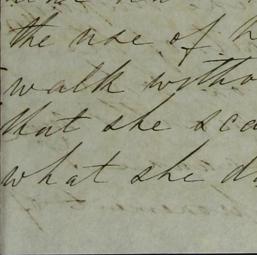 the use of h
walk witho
that she sca
what she d